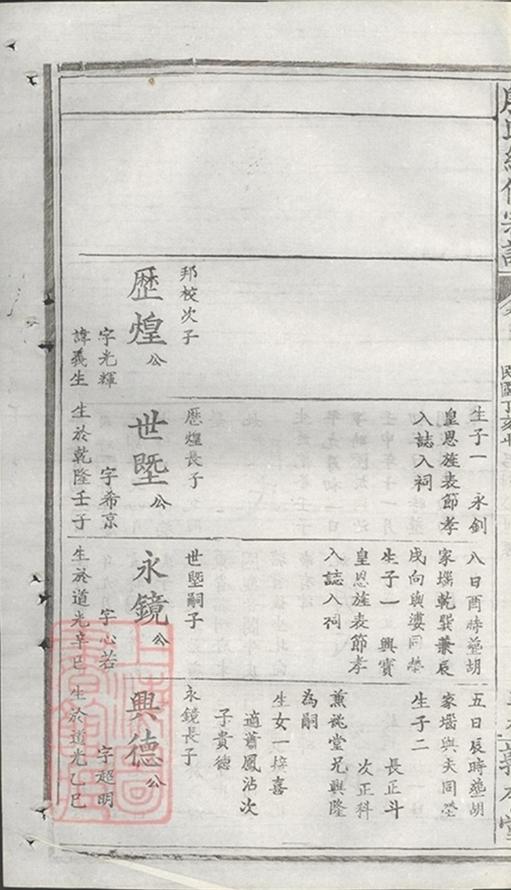 生子一 永釗
皇恩旌表節孝
入誌入祠
八日酉時塟胡
家塯乾巽兼辰
戌向與婆同塋
生子一 興寶
皇恩旌表節孝
入誌入祠
五日辰時塟胡
家塯與夫同塋
生子二 長正斗
次正科
為嗣
生女一接喜
適蕭鳳沾次
子貴德
邦校次子
歷煌公
字光輝
諱義生
歷煌長子
世塈公
字希京
生於乾隆壬子
世塈嗣子
永鏡公
字心若
生於道光辛巳
永鏡長子
興德公
字超明
生於道光乙巳